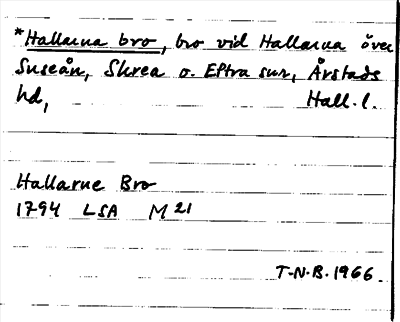 *Hallarna bro, bro vid Hallarna över
Suseån, Skrea o. Eftra snr, Årstads
hd, Hall. l.
Hallarne Bro
1794 LSA M 21
T-N-B. 1966.